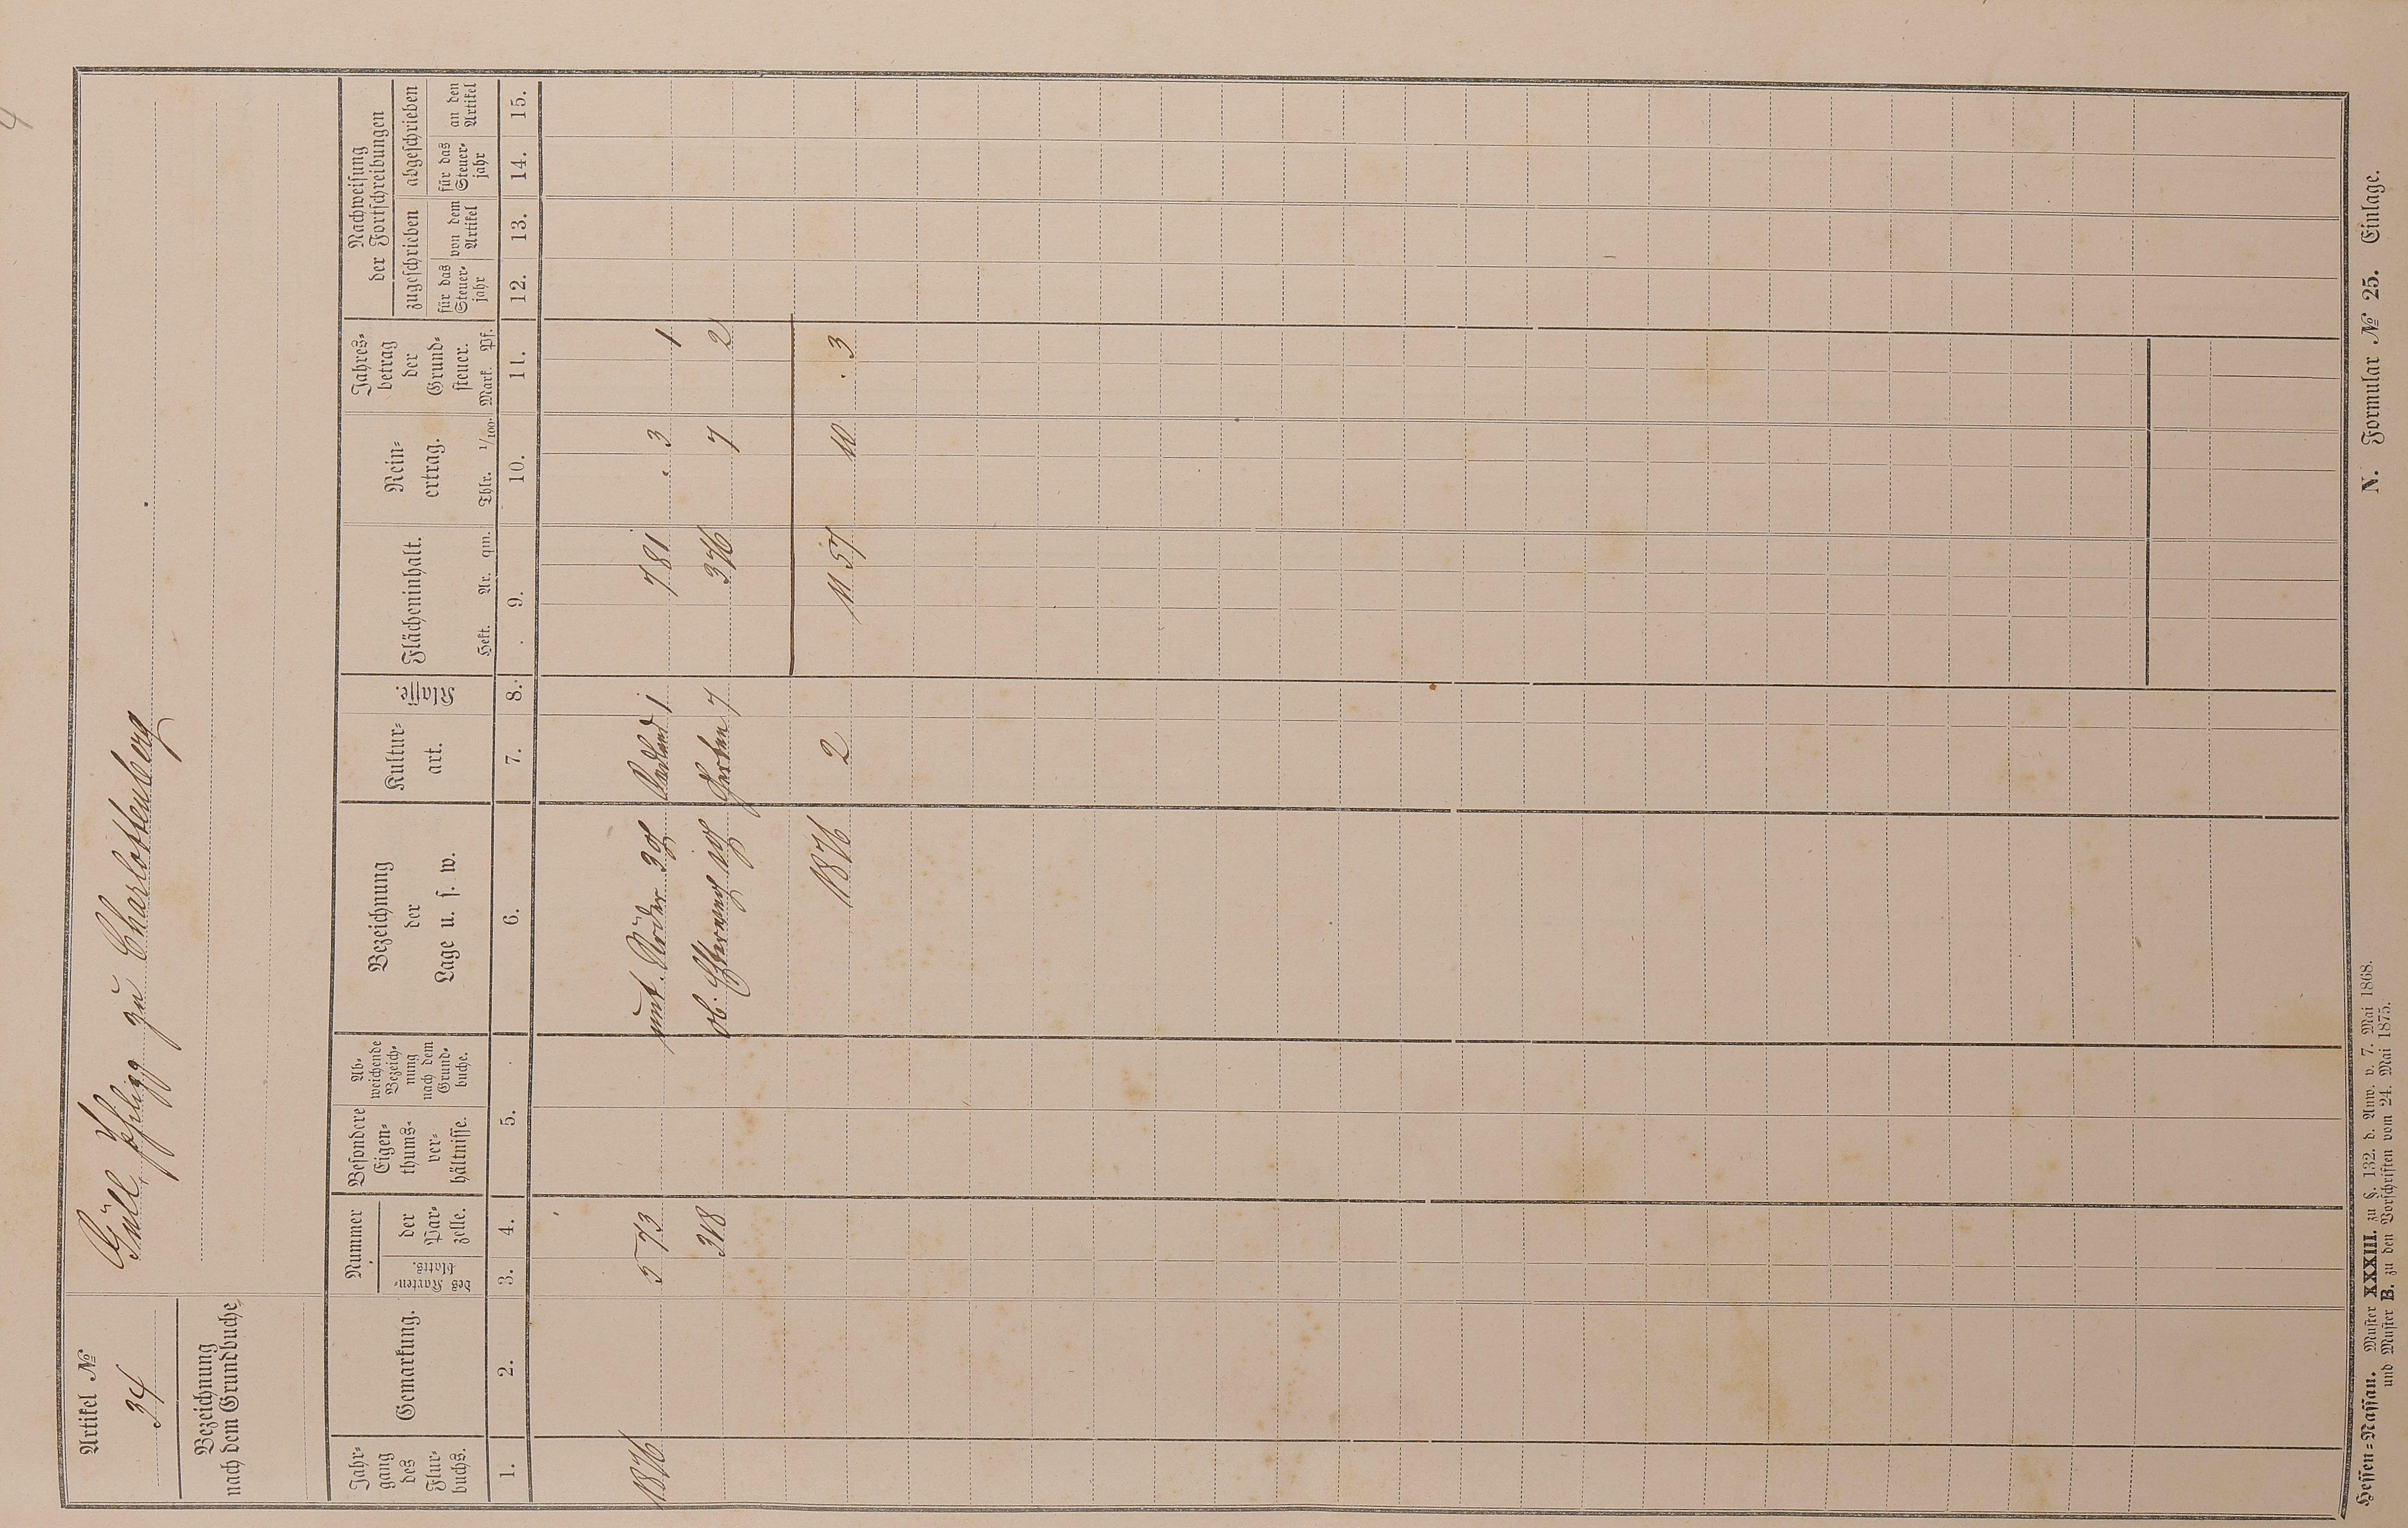 Artikel №
34
Bezeichnung
nach dem Grundbuche
Güll, zu Charlottenberg
Jahr-
gang
des
Flur-
buchs.
Gemarkung.
Nummer
des Karten-
blatts.
der
Par-
zelle.
Besondere
Eigen-
thums-
ver-
hältnisse.
Ab-
weichende
Bezeich-
nung
nach dem
Grund-
buche.
Bezeichnung
der
Lage u. s. w.
Kultur-
art.
Klasse.
Flächeninhalt.
Hekt. Ar. qm.
Rein-
ertrag.
Thlr. 1/100.
Jahres-
betrag
der
Grund-
steuer.
Mark. Pf.
Nachweisung
der Fortschreibungen
zugeschrieben
für das
Steuer-
jahr
von dem
Artikel
abgeschrieben
für das
Steuer-
jahr
an den
Artikel
1. 2. 3. 4. 5. 6. 7. 8. 9. 10. 11. 12. 13. 14. 15.
1876 5 73 unt. Röder Ackerland 1 7 81 . 3 1
318 ob. Garten 7 3 76 7 2
1876 2 11 57 10 . 3
Hessen-Nassau. Muster XXXIII. zu §. 132. d. Anw. v. 7. Mai 1868.
und Muster B. zu den Vorschriften vom 24. Mai 1875.
N. Formular № 25. Einlage.